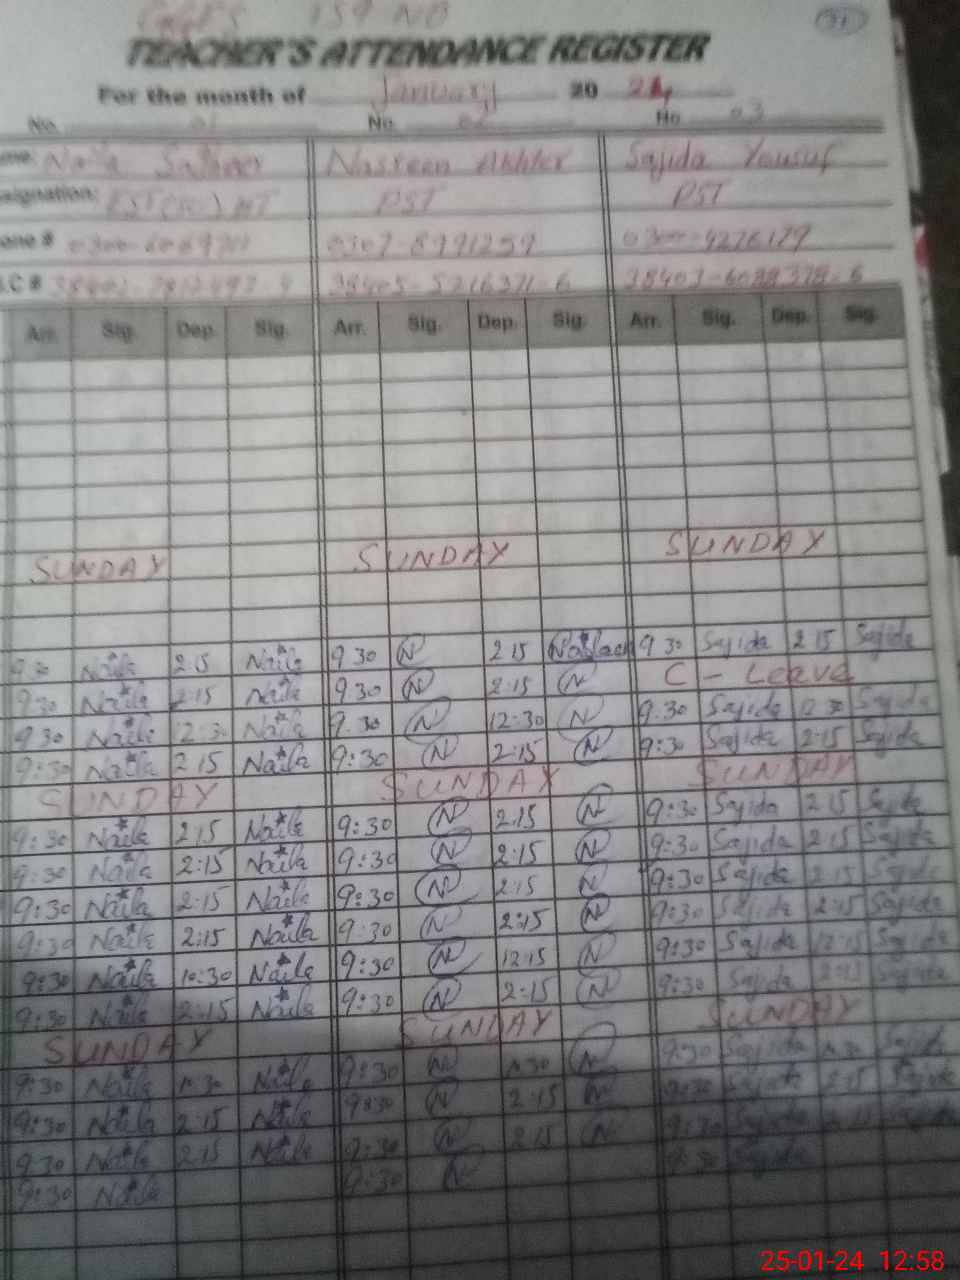 159 NB
31
TEACHER'S ATTENDANCE REGISTER
For the month of January 20 24
No. 01 No. 02 No 03
Naila Nasreen Akhter Sajida Yousuf
signation: PST PST
one # 0307-8991259 0300-4276179
.C # 38405-5216371-6
Arr. Sig. Dep. Sig. Arr. Sig. Dep. Sig. Arr. Sig. Dep. Sig.
SUNDAY SUNDAY SUNDAY
9:30 Naila 2:15 Naila 9 30 N 2 15 9 30 Sajida 2 15 Sajida
9:30 Naila 2:15 Naila 9:30 N 2:15 N C - Leave
9 30 Naila 12:30 Naila 9:30 N 12:30 N 9:30 Sajida 12 30 Sajida
9:30 Naila 2 15 Naila 9:30 N 2:15 N 9:30 Sajida 2:15 Sajida
SUNDAY SUNDAY SUNDAY
9:30 Naila 2:15 Naila 9:30 N 2:15 N 9:30 Sajida 2 15 Sajida
9:30 Naila 2:15 Naila 9:30 N 2:15 N 9:30 Sajida 2:15 Sajida
9:30 Naila 2:15 Naila 9:30 N 2:15 N 9:30 Sajida 2:15 Sajida
9:30 Naila 2:15 Naila 9:30 N 2:15 N 9:30 Sajida 2:15 Sajida
9:30 Naila 10:30 Naila 9:30 N 12:15 N 9:30 Sajida 12:15 Sajida
9:30 Naila 2:15 Naila 9:30 N 2:15 N 9:30 Sajida Sajida
SUNDAY SUNDAY SUNDAY
9:30 Naila Naila 9:30 N N 9:30 Sajida Sajida
9:30 Naila 2:15 Naila 9:30 N 2:15 N 9:30 Sajida 2:15 Sajida
9:30 Naila 2:15 Naila 9:30 N 2:15 N 9:30 Sajida 2:15 Sajida
9:30 Naila 9:30 N 9:30 Sajida
25-01-24 12:58